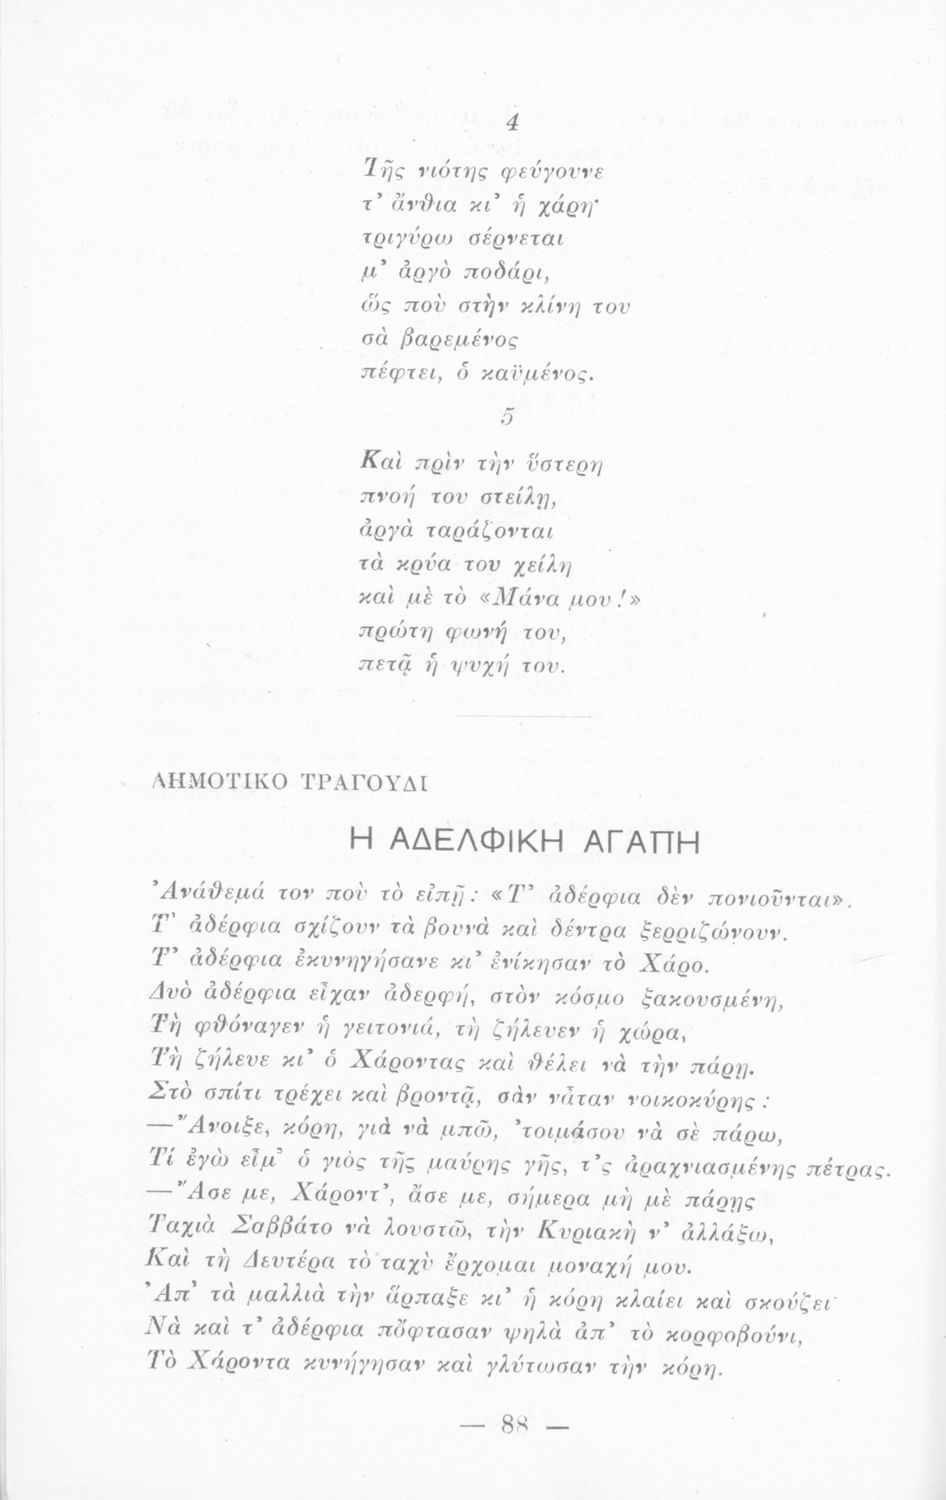 4
Τῆς νιότης φεύγουνε
τ' ἄνθια κι' ἡ χάρη·
τριγύρω σέρνεται
μ' ἀργὸ ποδάρι,
ὥς ποὺ στὴν κλίνη του
σὰ βαρεμένος
πέφτει, ὁ καϋμένος.
5
Καὶ πρὶν τὴν ὕστερη
πνοή του στείλῃ,
ἀργὰ ταράζονται
τὰ κρύα του χείλη
καὶ μὲ τὸ «Μάνα μου!»
πρώτη φωνή του,
πετᾷ ἡ ψυχή του.
ΔΗΜΟΤΙΚΟ ΤΡΑΓΟΥΔΙ
Η ΑΔΕΛΦΙΚΗ ΑΓΑΠΗ
Ἀνάθεμά τον ποὺ τὸ εἰπῇ: «Τ' ἀδέρφια δὲν πονιοῦνται».
Τ' ἀδέρφια σχίζουν τὰ βουνὰ καὶ δέντρα ξερριζώνουν.
Τ' ἀδέρφια ἐκυνηγήσανε κι' ἐνίκησαν τὸ Χάρο.
Δυὸ ἀδέρφια εἶχαν ἀδερφή, στὸν κόσμο ξακουσμένη,
Τὴ φθόναγεν ἡ γειτονιά, τὴ ζήλευεν ἡ χώρα,
Τὴ ζήλευε κι' ὁ Χάροντας καὶ θέλει νὰ τὴν πάρῃ.
Στὸ σπίτι τρέχει καὶ βροντᾷ, σὰν νἆταν νοικοκύρης:
—Ἄνοιξε, κόρη, γιὰ νὰ μπῶ, 'τοιμάσου νὰ σὲ πάρω,
Τί ἐγὼ εἶμ' ὁ γιὸς τῆς μαύρης γῆς, τ'ς ἀραχνιασμένης πέτρας.
—Ἄσε με, Χάροντ', ἄσε με, σήμερα μὴ μὲ πάρῃς
Ταχιὰ Σαββάτο νὰ λουστῶ, τὴν Κυριακὴ ν' ἀλλάξω,
Καὶ τὴ Δευτέρα τὸ ταχὺ ἔρχομαι μοναχή μου.
Ἀπ' τὰ μαλλιὰ τὴν ἅρπαξε κι' ἡ κόρη κλαίει καὶ σκούζει·
Νὰ καὶ τ' ἀδέρφια πὄφτασαν ψηλὰ ἀπ' τὸ κορφοβούνι,
Τὸ Χάροντα κυνήγησαν καὶ γλύτωσαν τὴν κόρη.
— 88 —